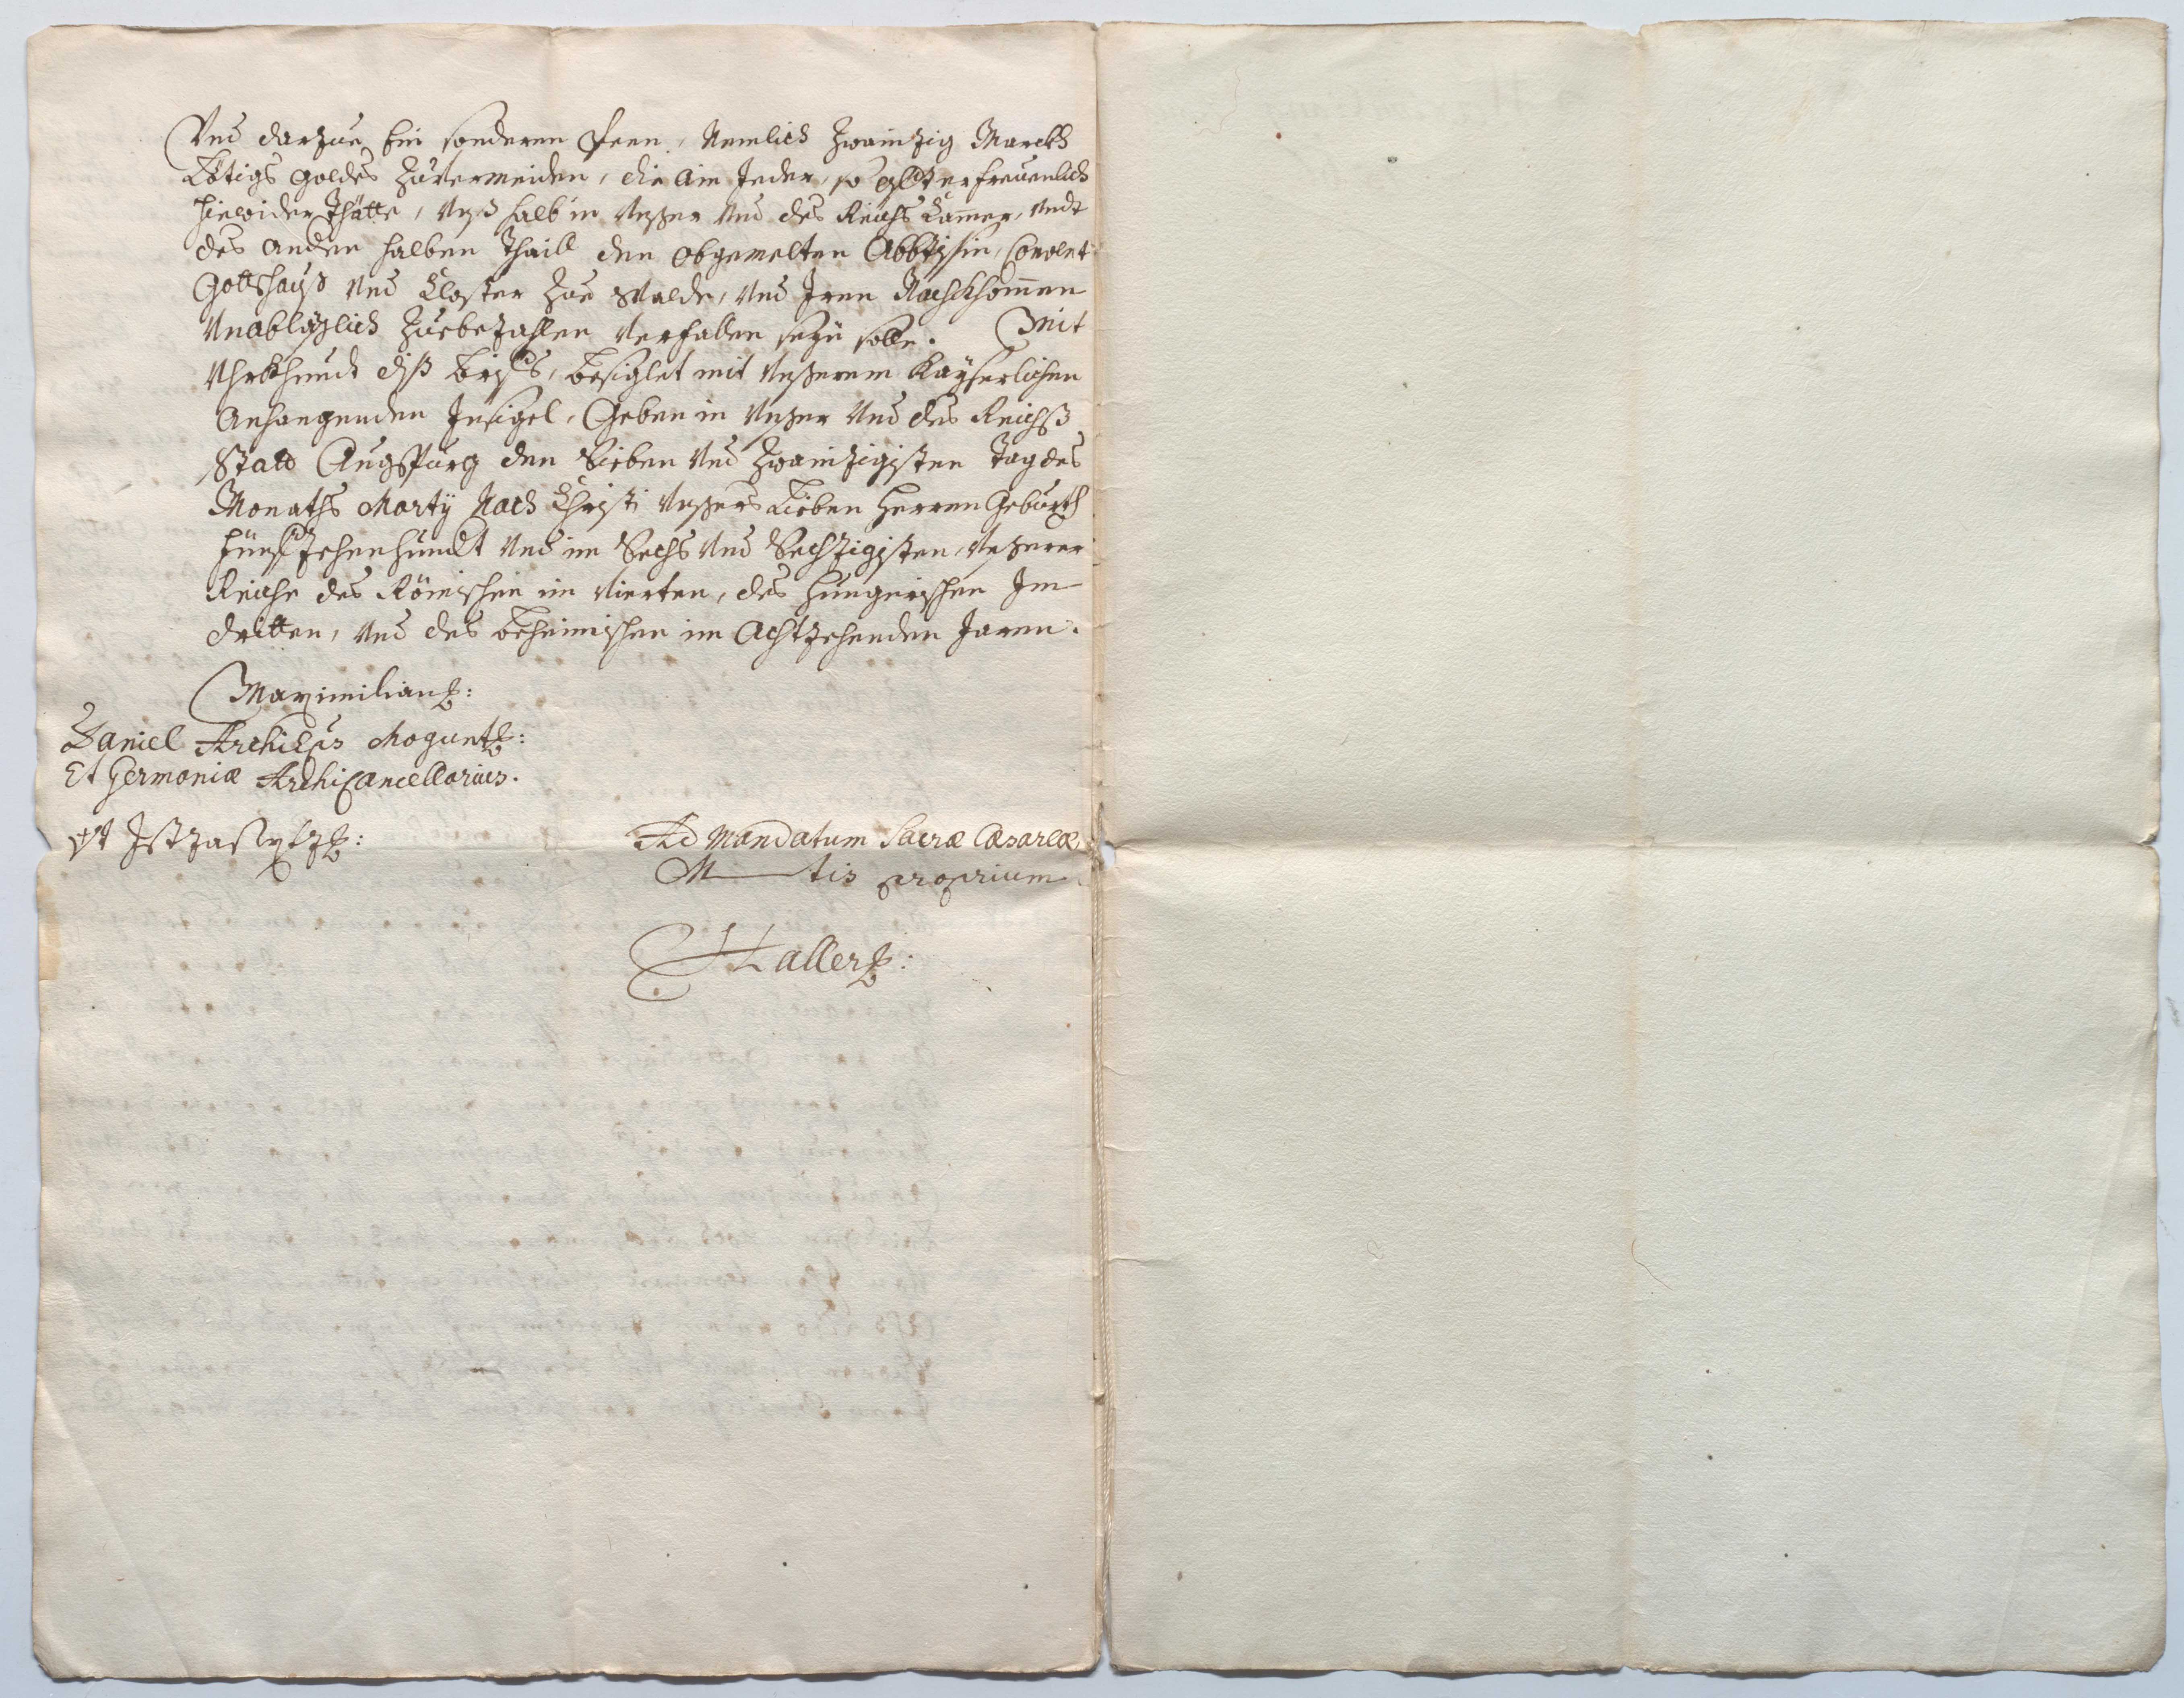 Vnd darzue bei sonderen Peen, Nemlich Zwainzig Marckh
Lötigs goldes Zuvermeiden, die ain Jeder, so offt er freuenlich
hiewider thätte, Vnß halb in Vnßer Vnd des Reichs Cammer, Vndt
des andern halben Thaill den obgemelten Abbtissin, Convent
Gottshauß Vnd Closter Zue Walde, Vnd Iren Nachkhommen
Vnabläßlich Zuebezahlen Verfallen seyn solle. Mit
Vhrkhundt diß briefs, besiglet mit Vnßerem Kayserlichen
Anhangenden Insigel, Geben in Vnßer Vnd des Reichß
Statt Augspurg den Sieben Vnd Zwainzigisten Tag des
Monaths Martij Nach Christi Vnßers Lieben Herren Geburth
Fünffzehenhundt Vnd im Sechs Vnd Sechzigisten, Vnßerer
Reiche des Römischen im Vierten, des Hungerischen Im
dritten, Vnd des Beheimischen im Achtzehenden Jaren.
Maximilian
Daniel Archieps Mogunt
Et Germaniæ Archicancellarius.
Vt
Ad Mandatum Sacræ Cæsareæ
M tis proprium
Haller